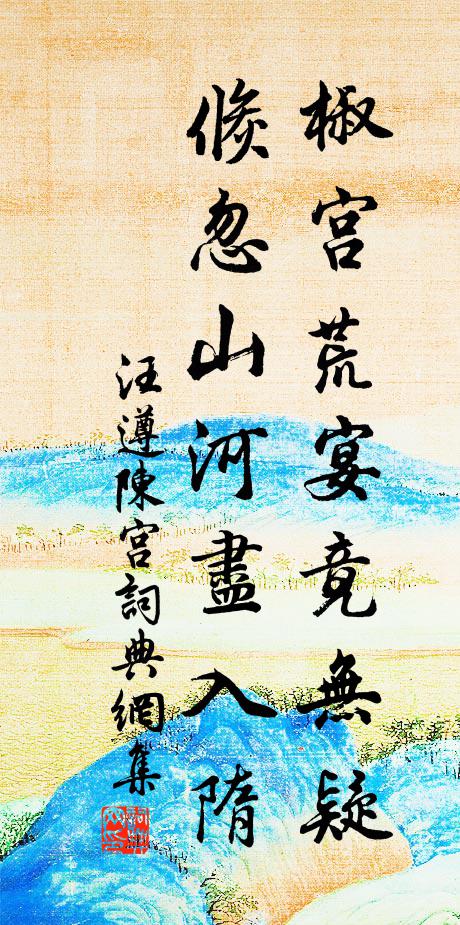 椒宮荒宴竟無疑
倏忽山河盡入隋
汪遵陳宮詞典網集